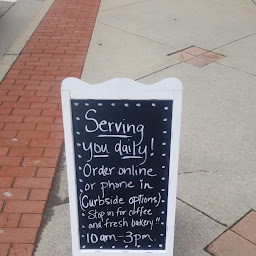 Serving
you daily!
Order online
or phone in
(Curbside options).
Stop in for coffee
and fresh bakery!!
10am-3pm